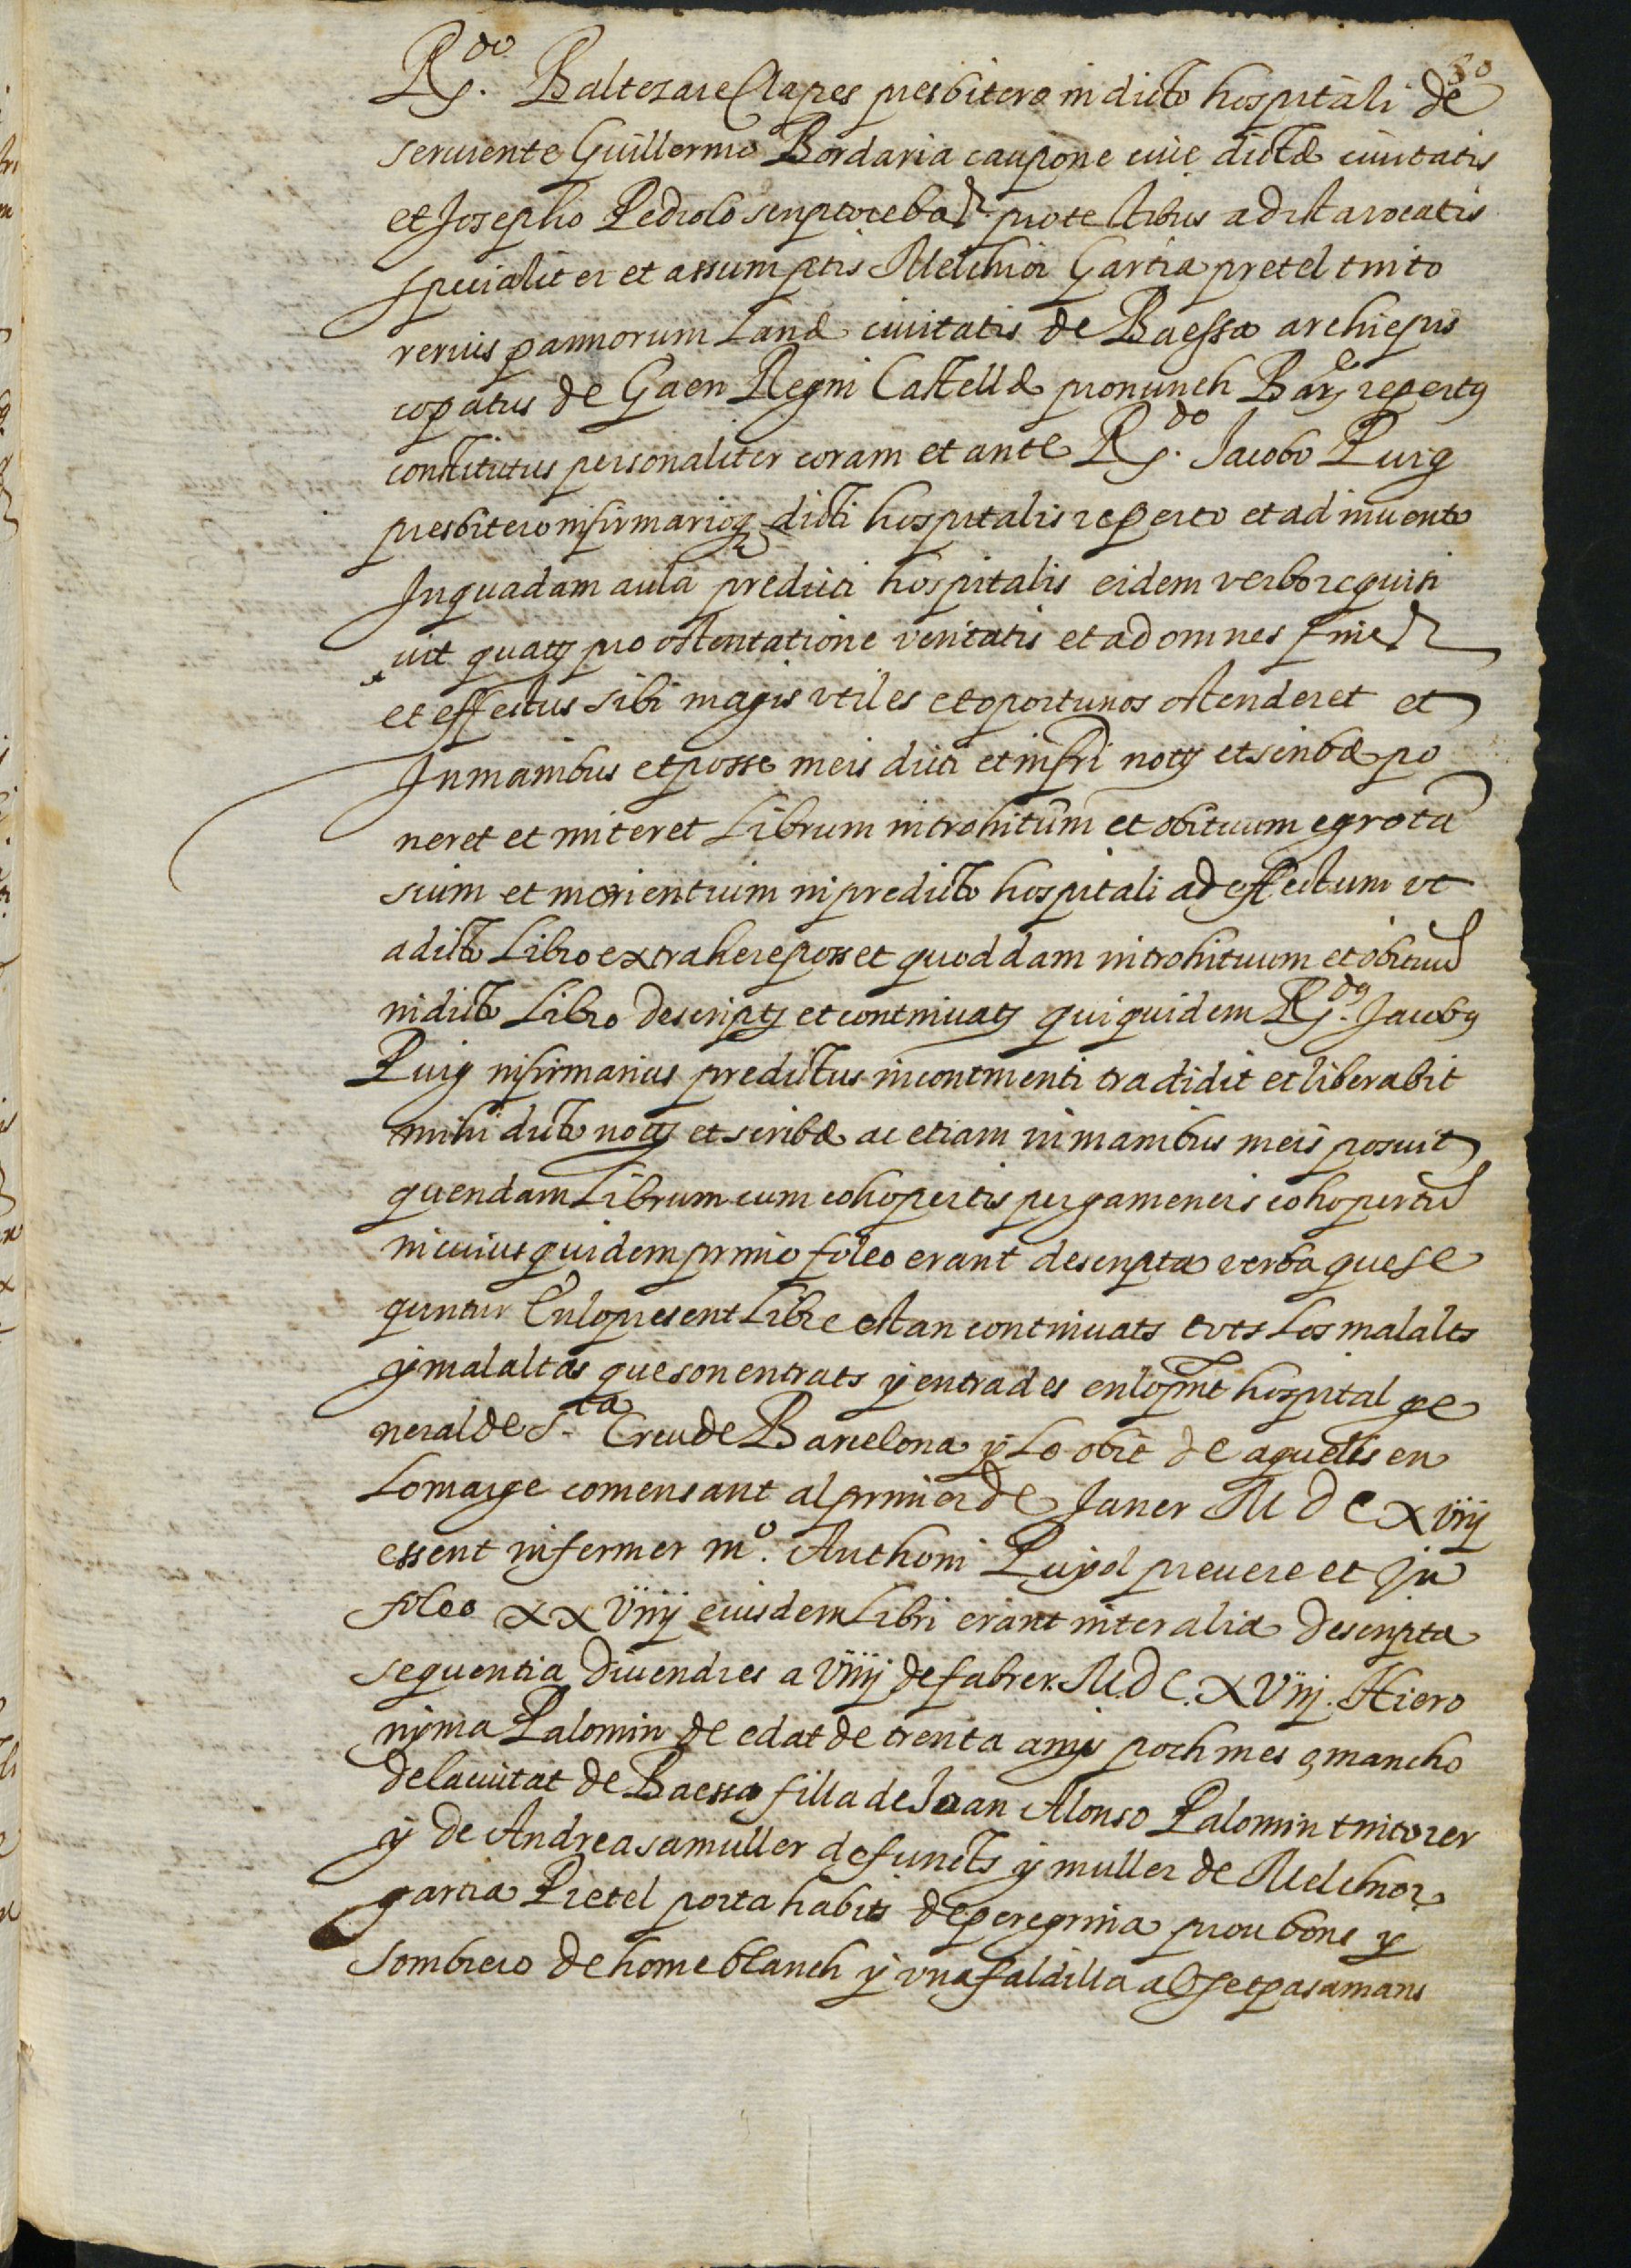 80
R.do Baltezare Clapes presbitero in dicto hospitali de
seruiente Guillermo Bordaria caupone ciue dictæ ciuitatis
et Josepho Pedrolo scriptore pro testibus ad ista vocatis
specialiter et assumptis Melchior Garcia pretel tinto
rerius pannorum Lanæ ciuitatis de Baessa archiepis
copatus de Gaen Regni Castellæ pro nunch Bar.e repertus
constitutus personaliter coram et ante R.do Jacobo Puig
presbitero infirmarioq dicti hospitalis reperto et ad inuento
In quadam aula predicti hospitalis eidem verbo requisi
uit quatq pro ostentatione veritatis et ad omnes fines
et effectus sibi magis vtiles et oportunos ostenderet et
In manibus et posse meis dicti et infri noty et scribæ po
neret et miteret Librum introhituum et obituum egrota
sium et morientium in predicto hospitali ad effectum vt
a dicto Libro extrahere posset quoddam introhituum et obituum
in dicto Libro descriptq et continuatq qui quidem R.dq Jacobq
Puig infirmarius predictus incontinenti tradidit et liberabit
mihi dicto notq et scribæ ac etiam in manibus meis posuit
quendam Librum cum cohopertis pergameneis cohopertum
in cuius quidem primo foleo erant descripta verba que se
quntur En lo present Libre estan continuats tots Los malalts
y malaltas que son entrats y entrades en lo pnt hospital ge
neral de S.ta Creu de Barcelona y Lo obit de aquells en
Lo marge comensant al primer de Janer M D C XViij
essent infermer m.o Anthoni Pujol preuere et In
foleo XXViiij eiusdem Libri erant inter alia descripta
sequentia Diuendres a Viiij de fabrer. M.D C. XViij. Hiero
nyma Palomin de edat de trenta anys poch mes q mancho
de la ciutat de Baessa filla de Joan Alonso Palomin tintorer
y de Andrea sa muller defuncts y muller de Melchior
garcia Pretel porta habits de peregrina prou bons y
sombrero de home blanch y vna faldilla ab set pasamans